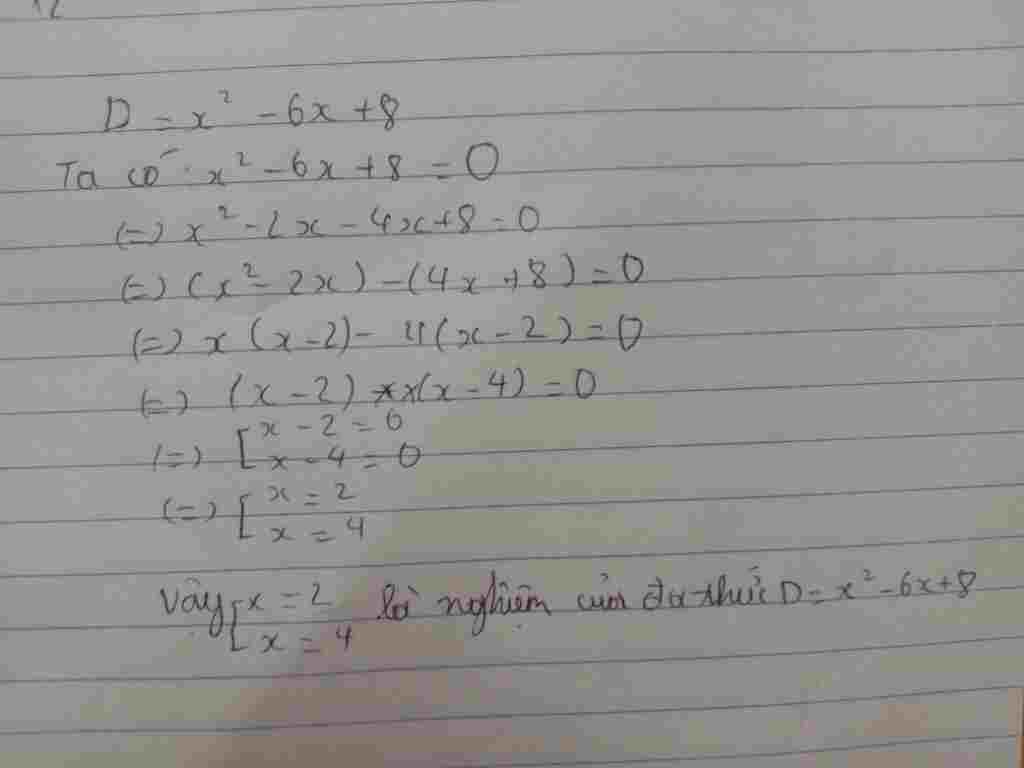 D = x² - 6x + 8
Ta có: x² - 6x + 8 = 0
(=) x² - 2x - 4x + 8 = 0
(=) (x² - 2x) - (4x + 8) = 0
(=) x (x - 2) - 4(x - 2) = 0
(=) (x - 2) x (x - 4) = 0
(=) [x - 2 = 0
x - 4 = 0
(=) [x = 2
x = 4
Vậy [x = 2 là nghiệm của đa thức D = x² - 6x + 8
x = 4